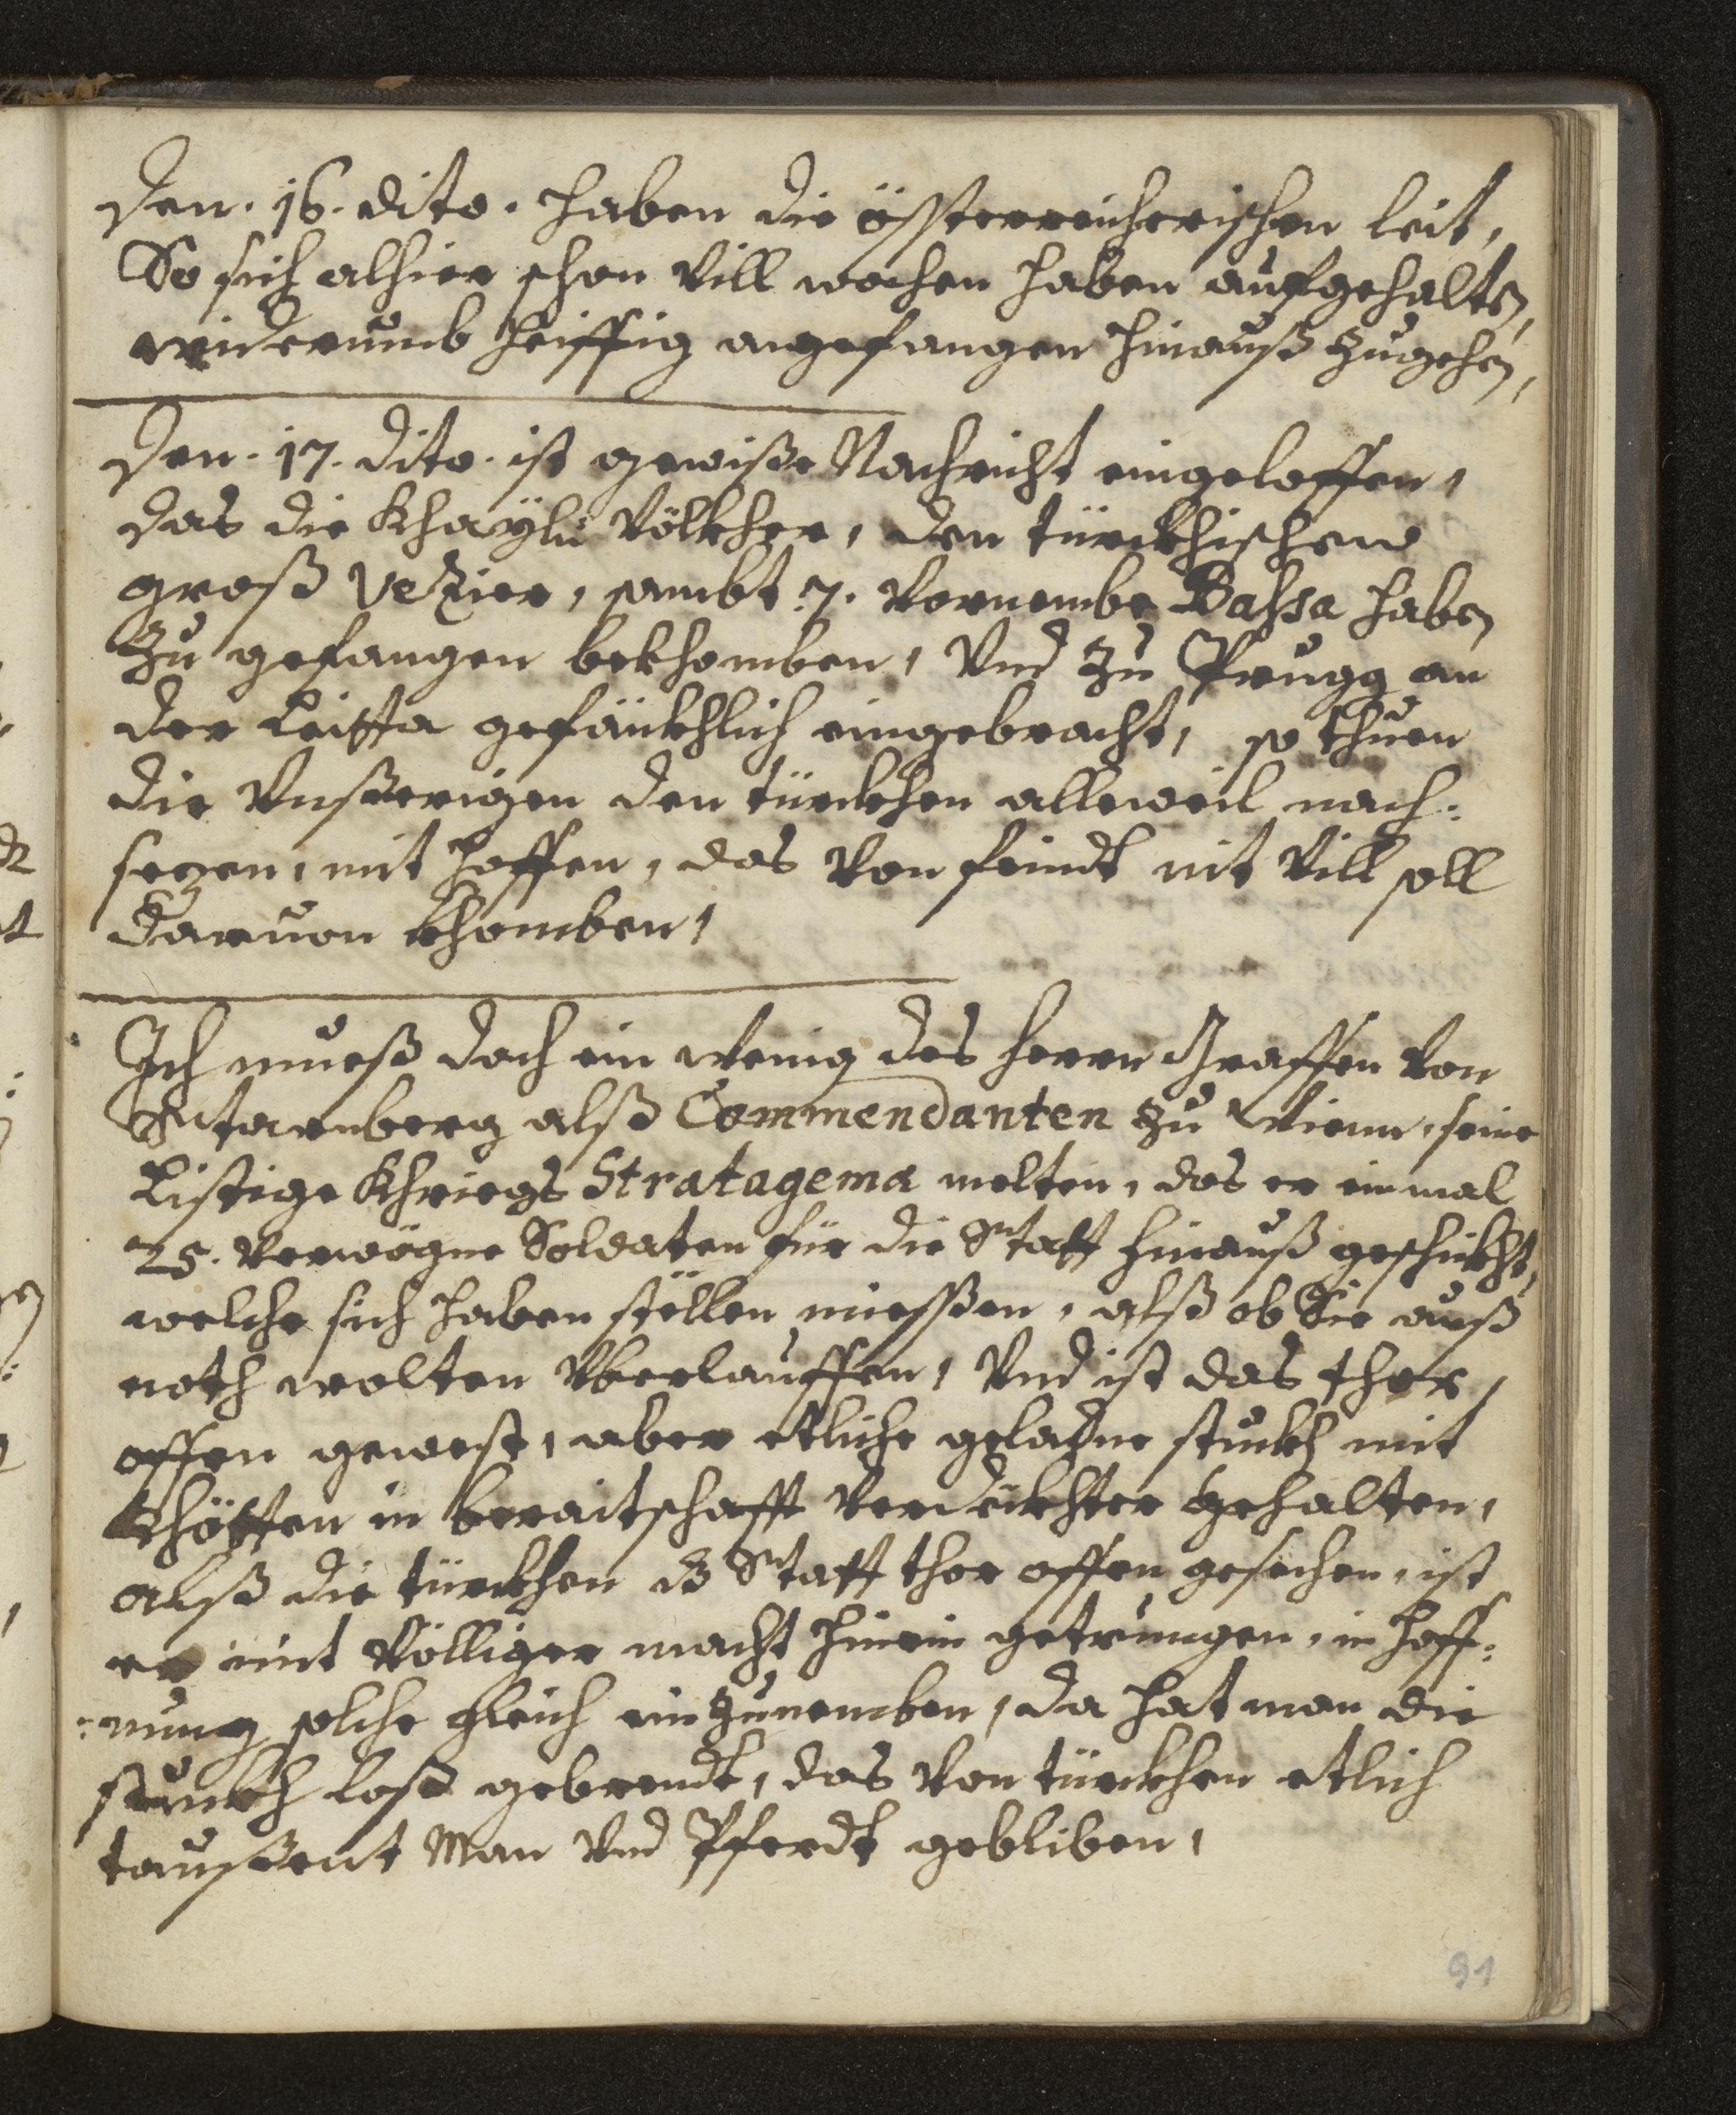 Den. 16. dito. haben die össterreicherischen leit,
So sich alhier schon Vill wochen haben aufgehalten,
widerumb heiffig angefangen hinauß zugehen,
Den. 17. dito. ist gewiße Nachricht eingeloffen,
das die Khayl: Völkher, den türckhischen
groß Vezier, sambt 7. Vornembe Bassa haben
zu gefangen bekhomben, Vnd zu Prugg an
der Leitta gefänkhlich eingebracht, so thuen
die Vnßerigen den türckhen alleweil nach:
sezen, mit hoffen, das Von feindt nit Vill soll
daruon khomben,
Ich mueß doch ein wenig des herrn Graffen Von
Starnberg alß Commendanten zu Wienn, seine
Listige Khriegs Stratagema melten, das er einmal
25. Verwögne Soldaten für die Statt hinauß geschickht,
welche sich haben stöllen miessen, alß ob Sie auß
noth wolten Vberlauffen, Vnd ist das thor,
offen gewest, aber etliche geladne stuckh mit
Khötten in beraitschafft Verdückhter gehalten,
alß die türckhen dz Statt thor offen gesechen, ist
er mit Völliger macht hinein getrungen, in hoff:
:nung solche gleich einzunemben, da hat man die
stuckh loß gebrendt, das Von türckhen etlich
taussent Man Vnd Pferdt gebliben,
91